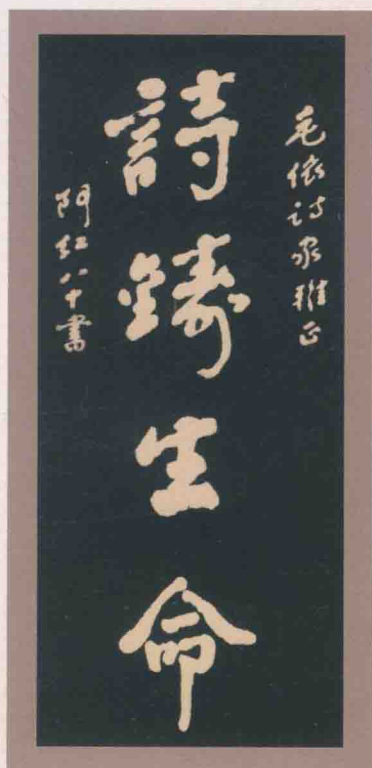 毛依诗家雅正
詩鑄生命
阿红八十書